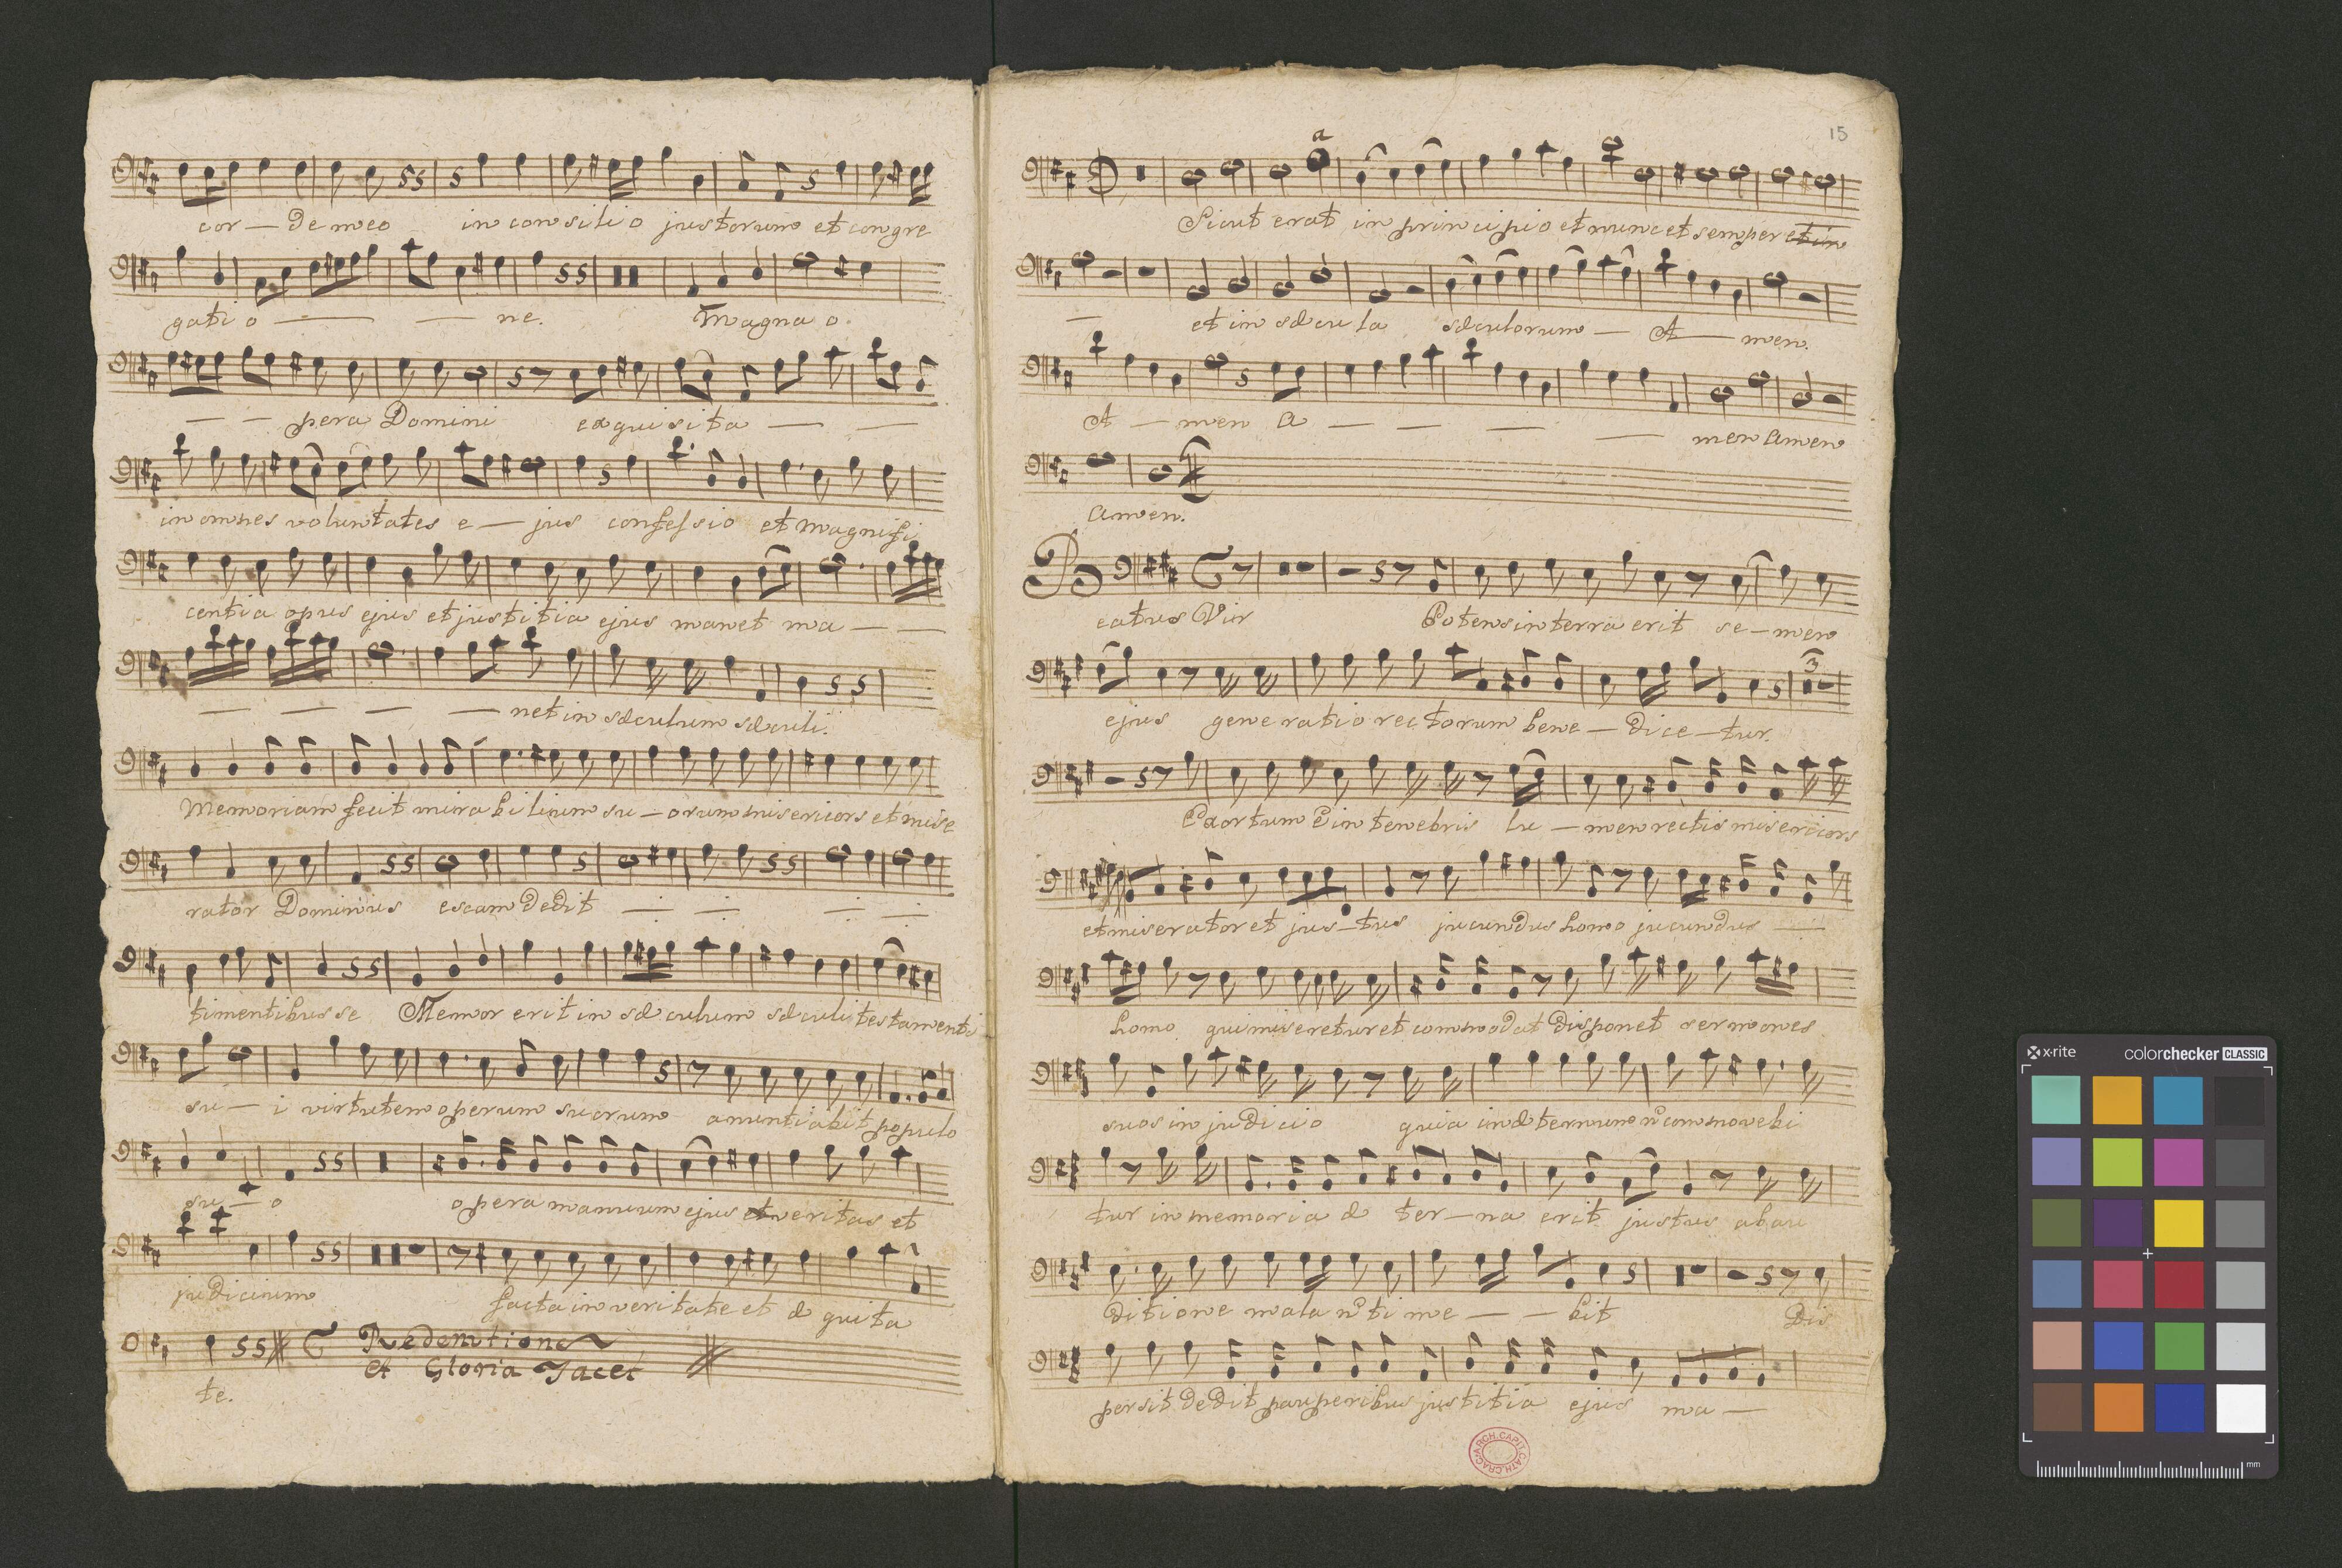 cor — de meo in consilio justorum et congre
gati o — — ne. Magna o
— — pera Domini exquisita — —
in omnes voluntates e — jus confessio et magnifi
centia opus ejus et justitia ejus manet ma — —
— — — — net in sæculum sæculi.
Memoriam fecit mirabilium su — orum misericors et mise
rator Dominus escam dedit
timentibus se Memor erit in sæculum sæculi testamenti
su — i virtutem operum suorum anuntiabit populo
su — o opera manuum ejus et veritas et
judicium facta in veritate et æquita
te. Redemtionē
et Gloria Tacet
15
a
Sicut erat in principio et nunc et semper et in
— et in sæcula sæculorum — A — men.
A — men a — — — — men amen
amen.
Beatus Vir Potens in terra erit se — men
ejus generatio rectorum bene — dice — tur.
3
Exortum ē in tenebris lu — men rectis misericors
et miserator et jus — tus jucundus homo jucundus —
homo qui miseretur et commodat disponet sermones
suos in judicio quia in æternum nō commovebi
tur in memoria æ ter — na erit justus ab au
ditione mala nō time — — bit Dis
persit dedit pauperibus justitia ejus ma —
ARCH. CAPIT. CATH. CRAC.
x-rite
colorchecker CLASSIC
mm